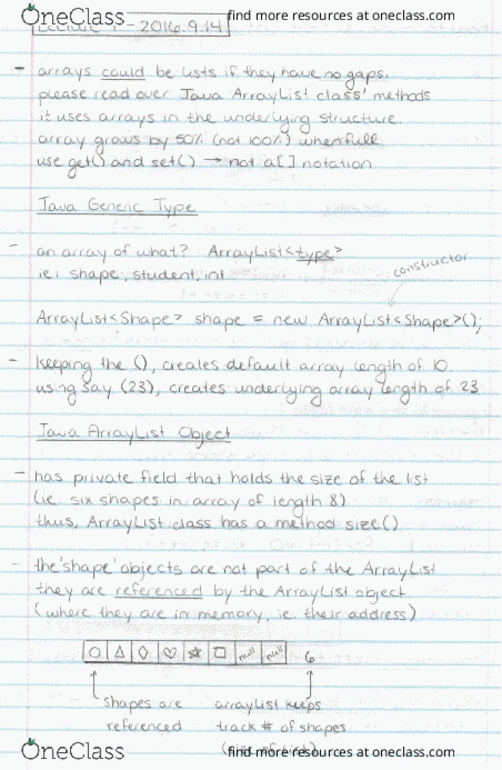 OneClass find more resources at oneclass.com
- 2016.9.14
- arrays could be lists if they have no gaps.
please read over Java ArrayList class' methods
it uses arrays in the underlying structure.
array grows by 50% (not 100%) when full
use get() and set() → not a[] notation
Java Generic Type
- an array of what? ArrayList<type>
ie: shape, student, int
constructor
ArrayList<Shape> shape = new ArrayList<Shape>();
- keeping the (), creates default array length of 10.
using say (23), creates underlying array length of 23
Java ArrayList Object
- has private field that holds the size of the list
(ie. six shapes in array of length 8)
thus, ArrayList class has a method size()
- the 'shape' objects are not part of the ArrayList
they are referenced by the ArrayList object
(where they are in memory, ie. their address)
null null 6
shapes are arrayList keeps
referenced track # of shapes
OneClass find more resources at oneclass.com